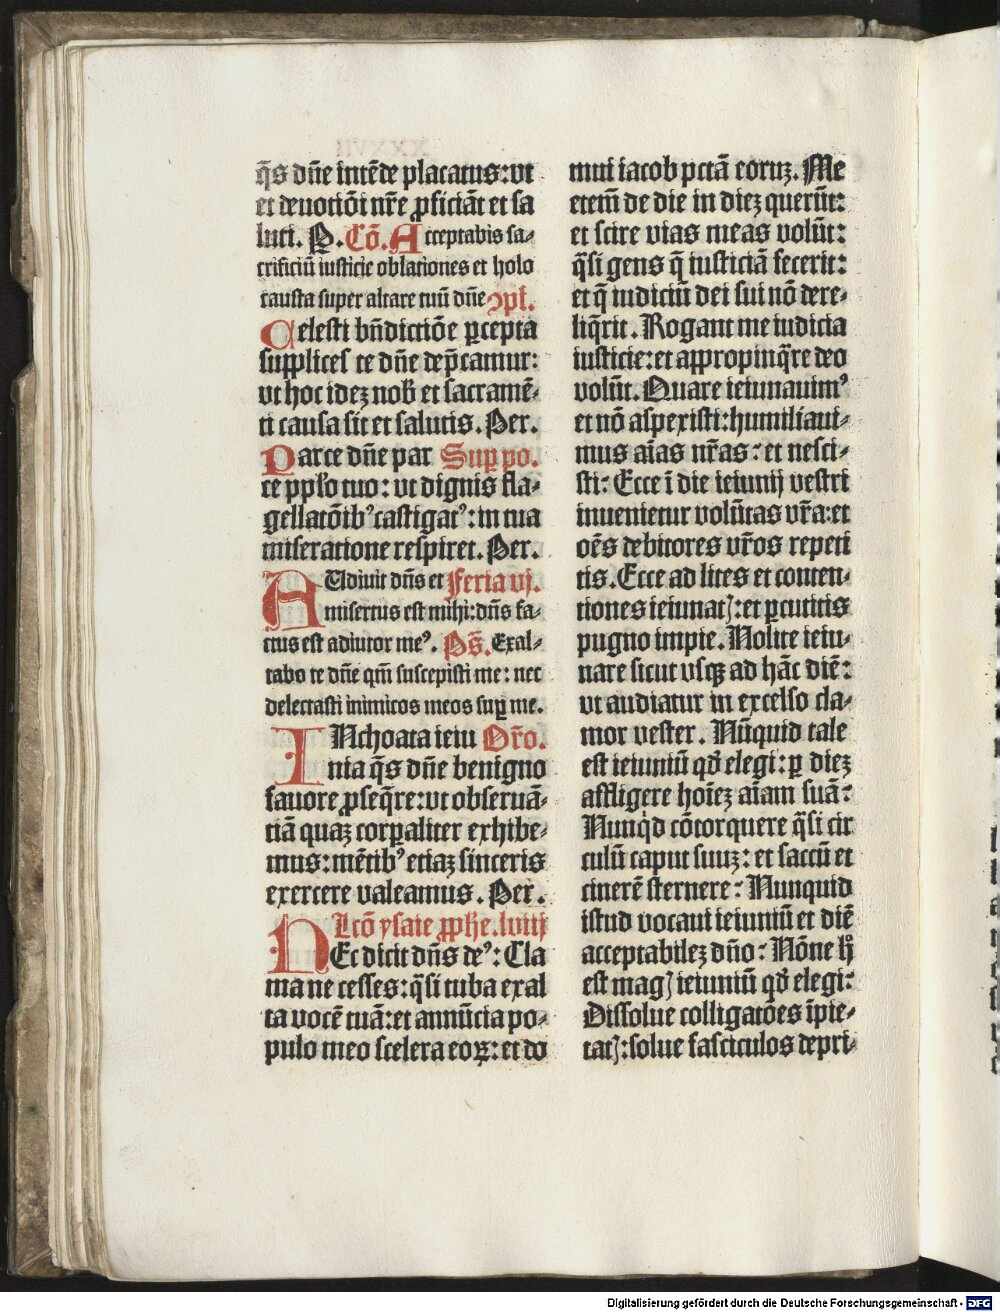 q̃s dñe intẽde placatus: vt
et deuotiõi nr̃e ꝓficiãt et sa
luti. P. Cõ. Acceptabis sa⸗
crificiũ iusticie oblationes et holo
causta super altare tuũ dñe ↄpl̃.
Celesti bñdictiõe ꝑcepta
supplices te dñe dep̃camur:
vt hoc idez nob̃ et sacramẽ⸗
ti causa sit et salutis. Per.
Parce dñe par Suꝑ po.
ce pplo tuo: vt dignis fla⸗
gellatõib⁹ castigat⁹: in tua
miseratione respiret. Per.
AUdiuit dñs et Feria vj.
misertus est mihi: dñs fa⸗
ctus est adiutor me⁹. Ps̃. Exal⸗
tabo te dñe qm̃ suscepisti me: nec
delectasti inimicos meos suꝑ me.
INchoata ieiu Or̃o.
nia q̃s dñe benigno
fauore ꝓseq̃re: vt obseruã⸗
tiã quaz corꝑaliter exhibe⸗
mus: mẽtib⁹ etiaz sinceris
exercere valeamus. Per.
Lcõ ysaie ꝓphe. lviij
HEc dicit dñs de⁹: Cla
ma ne cesses: q̃si tuba exal
ta vocẽ tuã: et annũcia po⸗
pulo meo scelera eoꝝ: et do
mui iacob pctã eoruz. Me
etem̃ de die in diez querũt:
et scire vias meas volũt:
q̃si gens q̃ iusticiã fecerit:
et q̃ iudiciũ dei sui nõ dere⸗
liq̃rit. Rogant me iudicia
iusticie: et appropinq̃re deo
volũt. Quare ieiunauim⁹
et nõ aspexisti: humiliaui⸗
mus aĩas nr̃as: et nesci⸗
sti: Ecce ĩ die ieiunij vestri
inuenietur volũtas vr̃a: et
oẽs debitores vr̃os repeti
tis. Ecce ad lites et conten⸗
tiones ieiunatꝭ: et ꝑcutitis
pugno impie. Nolite ieiu⸗
nare sicut vsqꝫ ad hãc diẽ:
vt audiatur in excelso cla⸗
mor vester. Nũquid tale
est ieiuniũ qđ elegi: ꝑ diez
affligere hoĩez aĩam suã:
Nunqd cõtorquere q̃si cir
culũ caput suuz: et saccũ et
cinerẽ sternere: Nunquid
istud vocaui ieiuniũ et diẽ
acceptabilez dño: Nõne h̃
est magꝭ ieiuniũ qđ elegi:
Dissolue colligatões ĩpie⸗
tatꝭ: solue fasciculos depri⸗
Digitalisierung gefördert durch die Deutsche Forschungsgemeinschaft - DFG